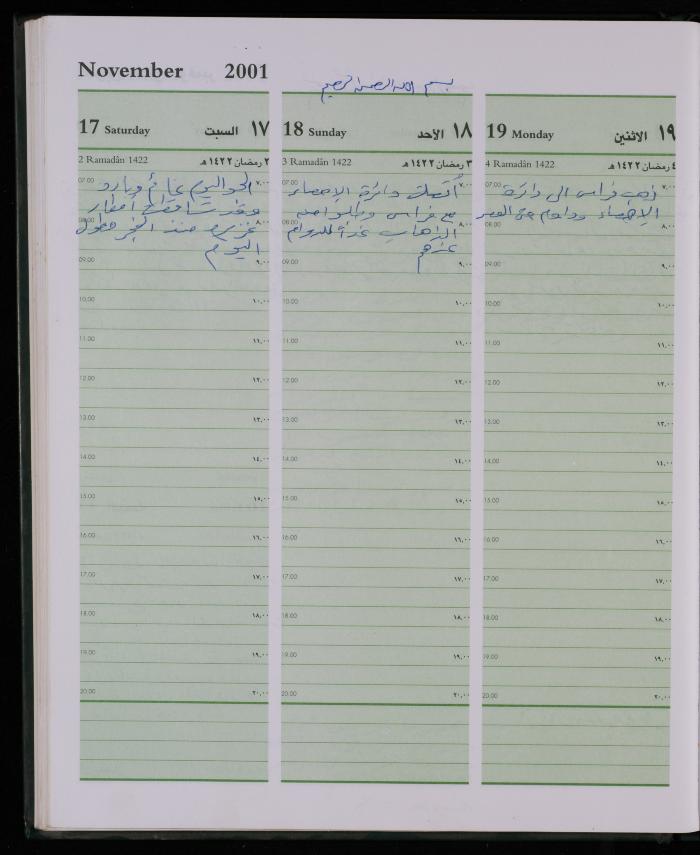 November 2001
بسم الله الرحمن الرحيم
17 Saturday السبت ١٧
2 Ramadân 1422 ٢ رمضان ١٤٢٢ هـ
07.00 ٧,٠٠
الجو اليوم غائم وبارد
وقد تساقطت أمطار
08.00 ٨,٠٠
غزيرة منذ الفجر وطول
اليوم
09.00 ٩,٠٠
10.00 ١٠,٠٠
11.00 ١١,٠٠
12.00 ١٢,٠٠
13.00 ١٣,٠٠
14.00 ١٤,٠٠
15.00 ١٥,٠٠
16.00 ١٦,٠٠
17.00 ١٧,٠٠
18.00 ١٨,٠٠
19.00 ١٩,٠٠
20.00 ٢٠,٠٠
18 Sunday الأحد ١٨
3 Ramadân 1422 ٣ رمضان ١٤٢٢ هـ
07.00 ٧,٠٠
أتصلت دائرة الإحصاء
مع فراس وطلبوا منه
08.00 ٨,٠٠
الذهاب غداً للدوام
عندهم
09.00 ٩,٠٠
10.00 ١٠,٠٠
11.00 ١١,٠٠
12.00 ١٢,٠٠
13.00 ١٣,٠٠
14.00 ١٤,٠٠
15.00 ١٥,٠٠
16.00 ١٦,٠٠
17.00 ١٧,٠٠
18.00 ١٨,٠٠
19.00 ١٩,٠٠
20.00 ٢٠,٠٠
19 Monday الاثنين ١٩
4 Ramadân 1422 ٤ رمضان ١٤٢٢ هـ
07.00 ٧,٠٠
ذهب فراس الى دائرة
الإحصاء وداوم حتى العصر
08.00 ٨,٠٠
09.00 ٩,٠٠
10.00 ١٠,٠٠
11.00 ١١,٠٠
12.00 ١٢,٠٠
13.00 ١٣,٠٠
14.00 ١٤,٠٠
15.00 ١٥,٠٠
16.00 ١٦,٠٠
17.00 ١٧,٠٠
18.00 ١٨,٠٠
19.00 ١٩,٠٠
20.00 ٢٠,٠٠